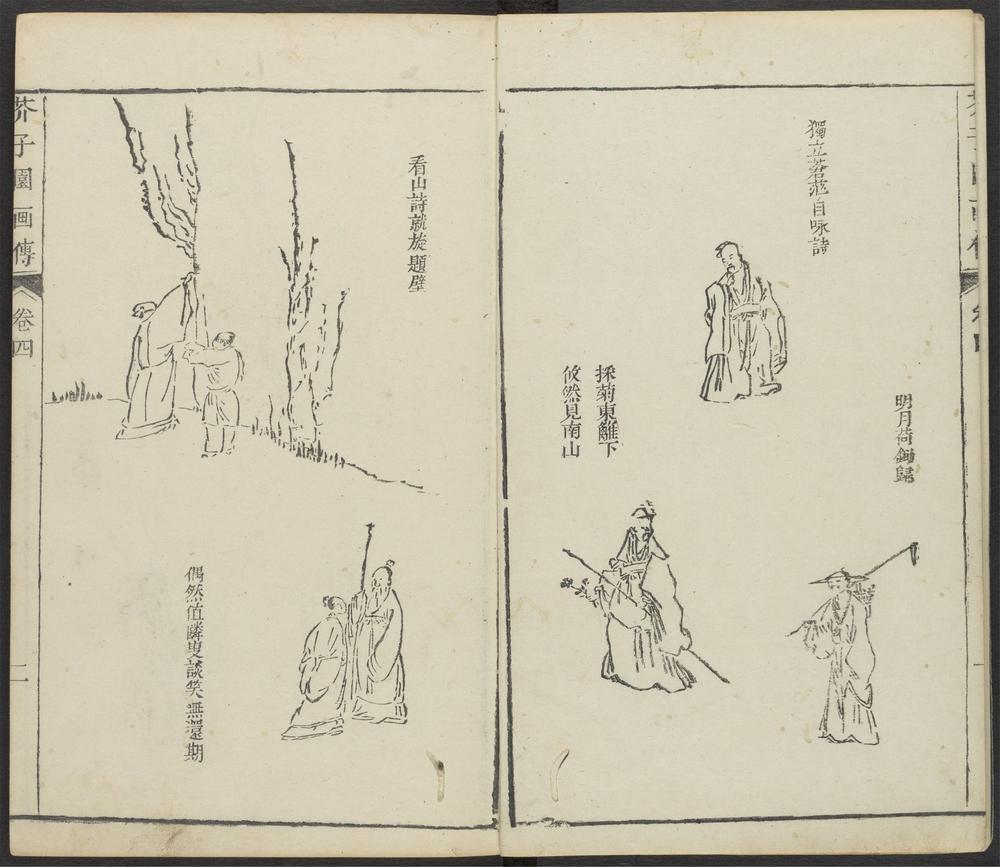 獨立蒼茫自咏詩
明月荷鋤歸
採菊東籬下
攸然見南山
看山詩就旋題壁
偶然值隣叟談笑無還期
芥子園画傳
卷四
二